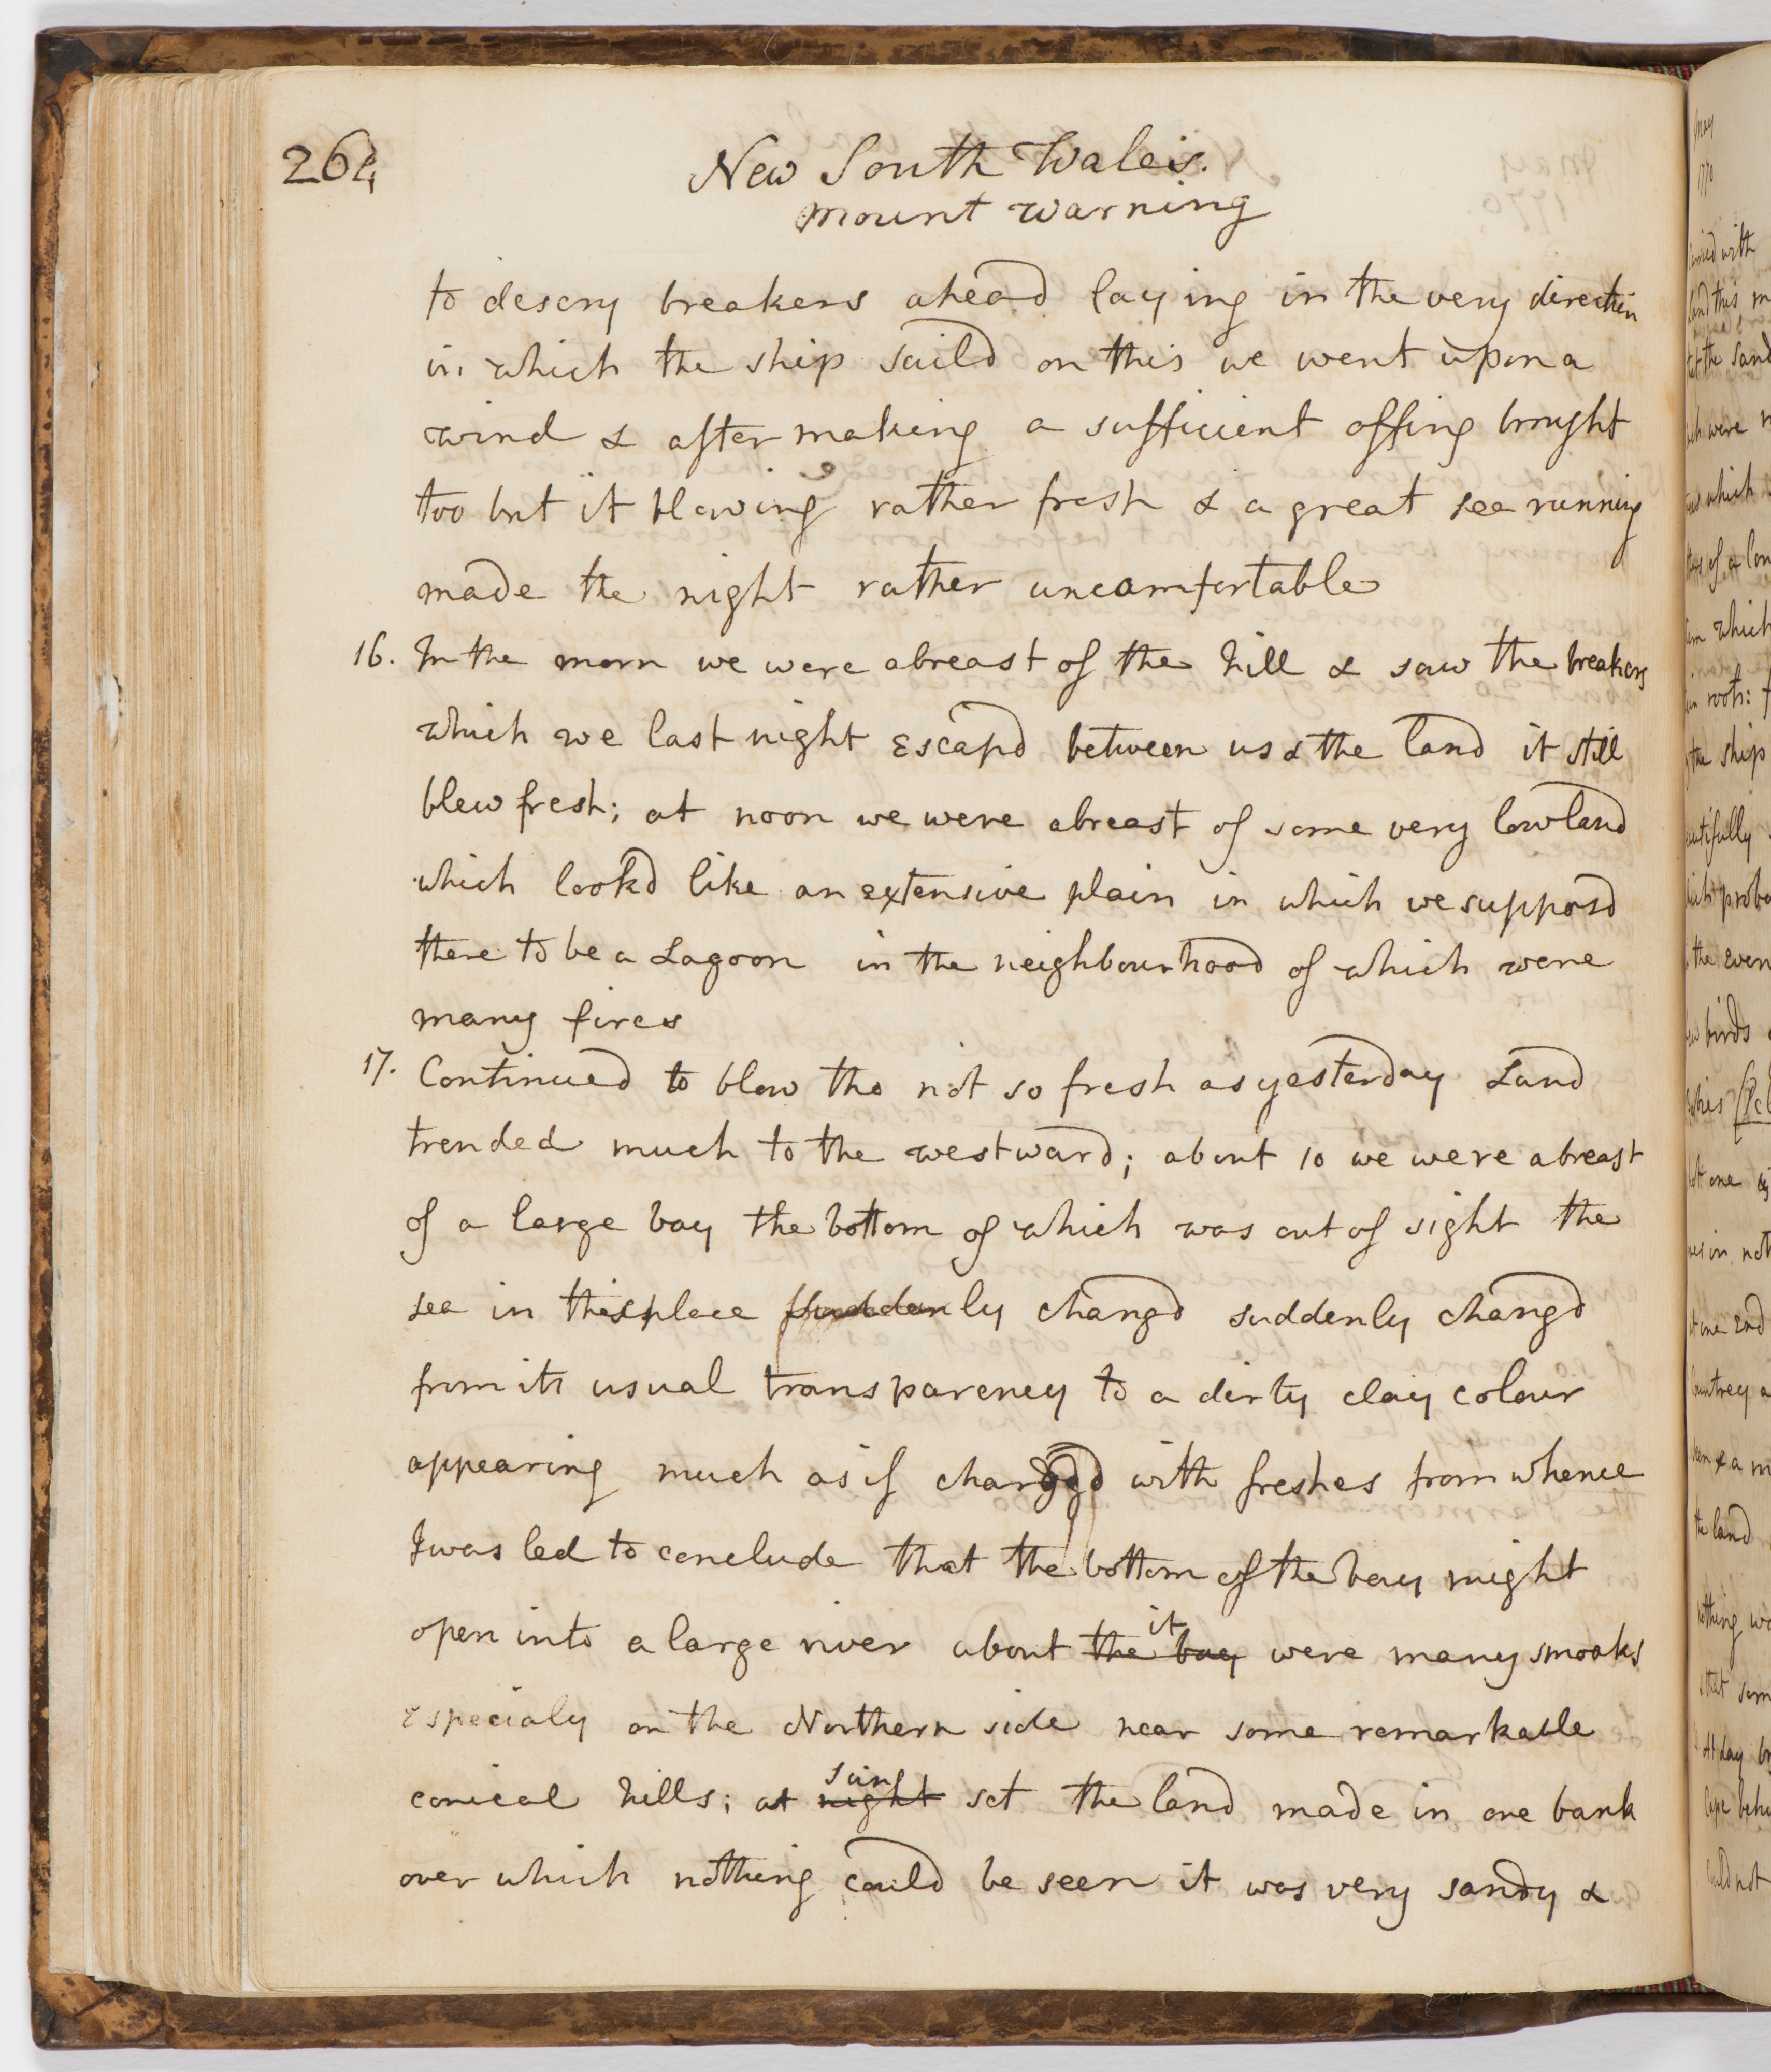 264
New South Wales.
Mount Warning
to descry breakers ahead laying in the very direction
in which the ship saild on this we went upon a
wind & after making a sufficient offing brought
too but it blowing rather fresh & a great sea running
made the night rather uncomfortable
16. In the morn we were abreast of the hill & saw the breakers
which we last night Escapd between us & the land it still
blew fresh; at noon we were abreast of some very lowland
which lookd like an extensive plain in which we supposd
there to be a Lagoon in the neighbourhood of which were
many fires
17. Continued to blow tho not so fresh as yesterday Land
trended much to the westward; about 10 we were abreast
of a large bay the bottom of which was out of sight the
sea in this place suddenly changd suddenly changd
from its usual transparency to a dirty clay colour
appearing much as if chargd with freshes from whence
I was led to conclude that the bottom of the bay might
open into a large river about the bay it were many smoaks
especialy on the Northern side near some remarkable
conical hills; at night sun set the land made in one bank
over which nothing could be seen it was very sandy &
May
1770
with
land this
the sand
were
which
of a Con
which
roots:
the ship
proba
the even
birds
one
in not
2nd
Countrey a
& a m
the land
nothing wa
that som
At day br
Cape behi
could not